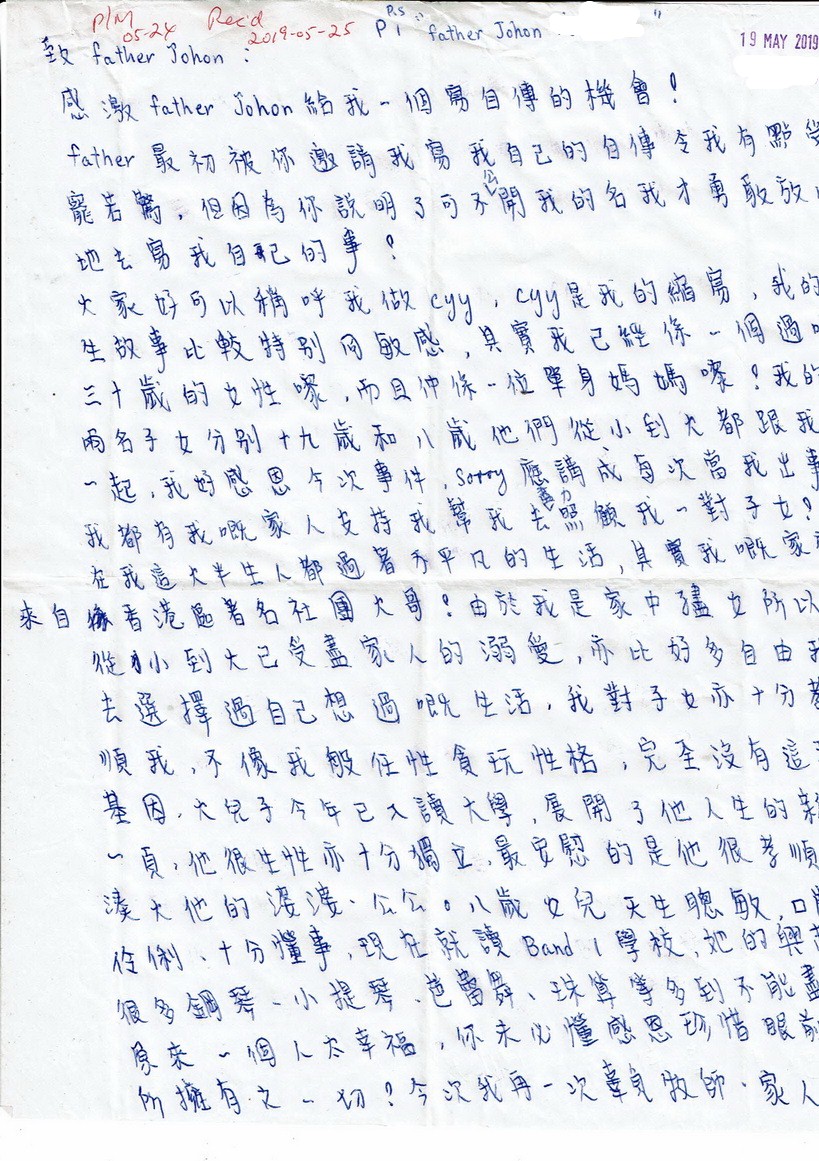 P/M
05-24
Rec'd
2019-05-25
P.S
P1 "father Johon "
19 MAY 2019
致 father Johon :
感激 father Johon 給我一個寫自傳的機會！
father 最初被你邀請我寫我自己的自傳令我有點受
寵若驚，但因為你說明了可不公開我的名我才勇敢放
地去寫我自己的事！
大家好可以稱呼我做 cyy，cyy是我的縮寫，我的
生故事比較特別同敏感，其實我已經係一個過
三十歲的女性嚟，而且仲係一位單身媽媽嚟！我的
兩名子女分別十九歲和八歲他們從小到大都跟我
一起，我好感恩今次事件，sorry 應講成每次當我出事
我都有我嘅家人支持我幫我去養力照顧我一對子女！
在我這大半生人都過着不平凡的生活，其實我嘅家
來自 香港區著名社團大哥！由於我是家中孻女所以
從小到大已受盡家人的溺愛，亦比好多自由我
去選擇過自己想過嘅生活，我對子女亦十分孝
順我，不像我般任性貪玩性格，完全沒有這
基因，大兒子今年已入讀大學，展開了他人生的新
一頁，他很生性亦十分獨立，最安慰的是他很孝順
湊大他的婆婆、公公。八歲女兒天生聰敏，口齒
伶俐、十分懂事，現在就讀 Band 1 學校，她的興
很多鋼琴、小提琴、芭蕾舞、珠算等多到不能盡
原來一個人太幸福，你未必懂感恩珍惜眼前
所擁有之一切！今次我再一次辜負牧師、家人